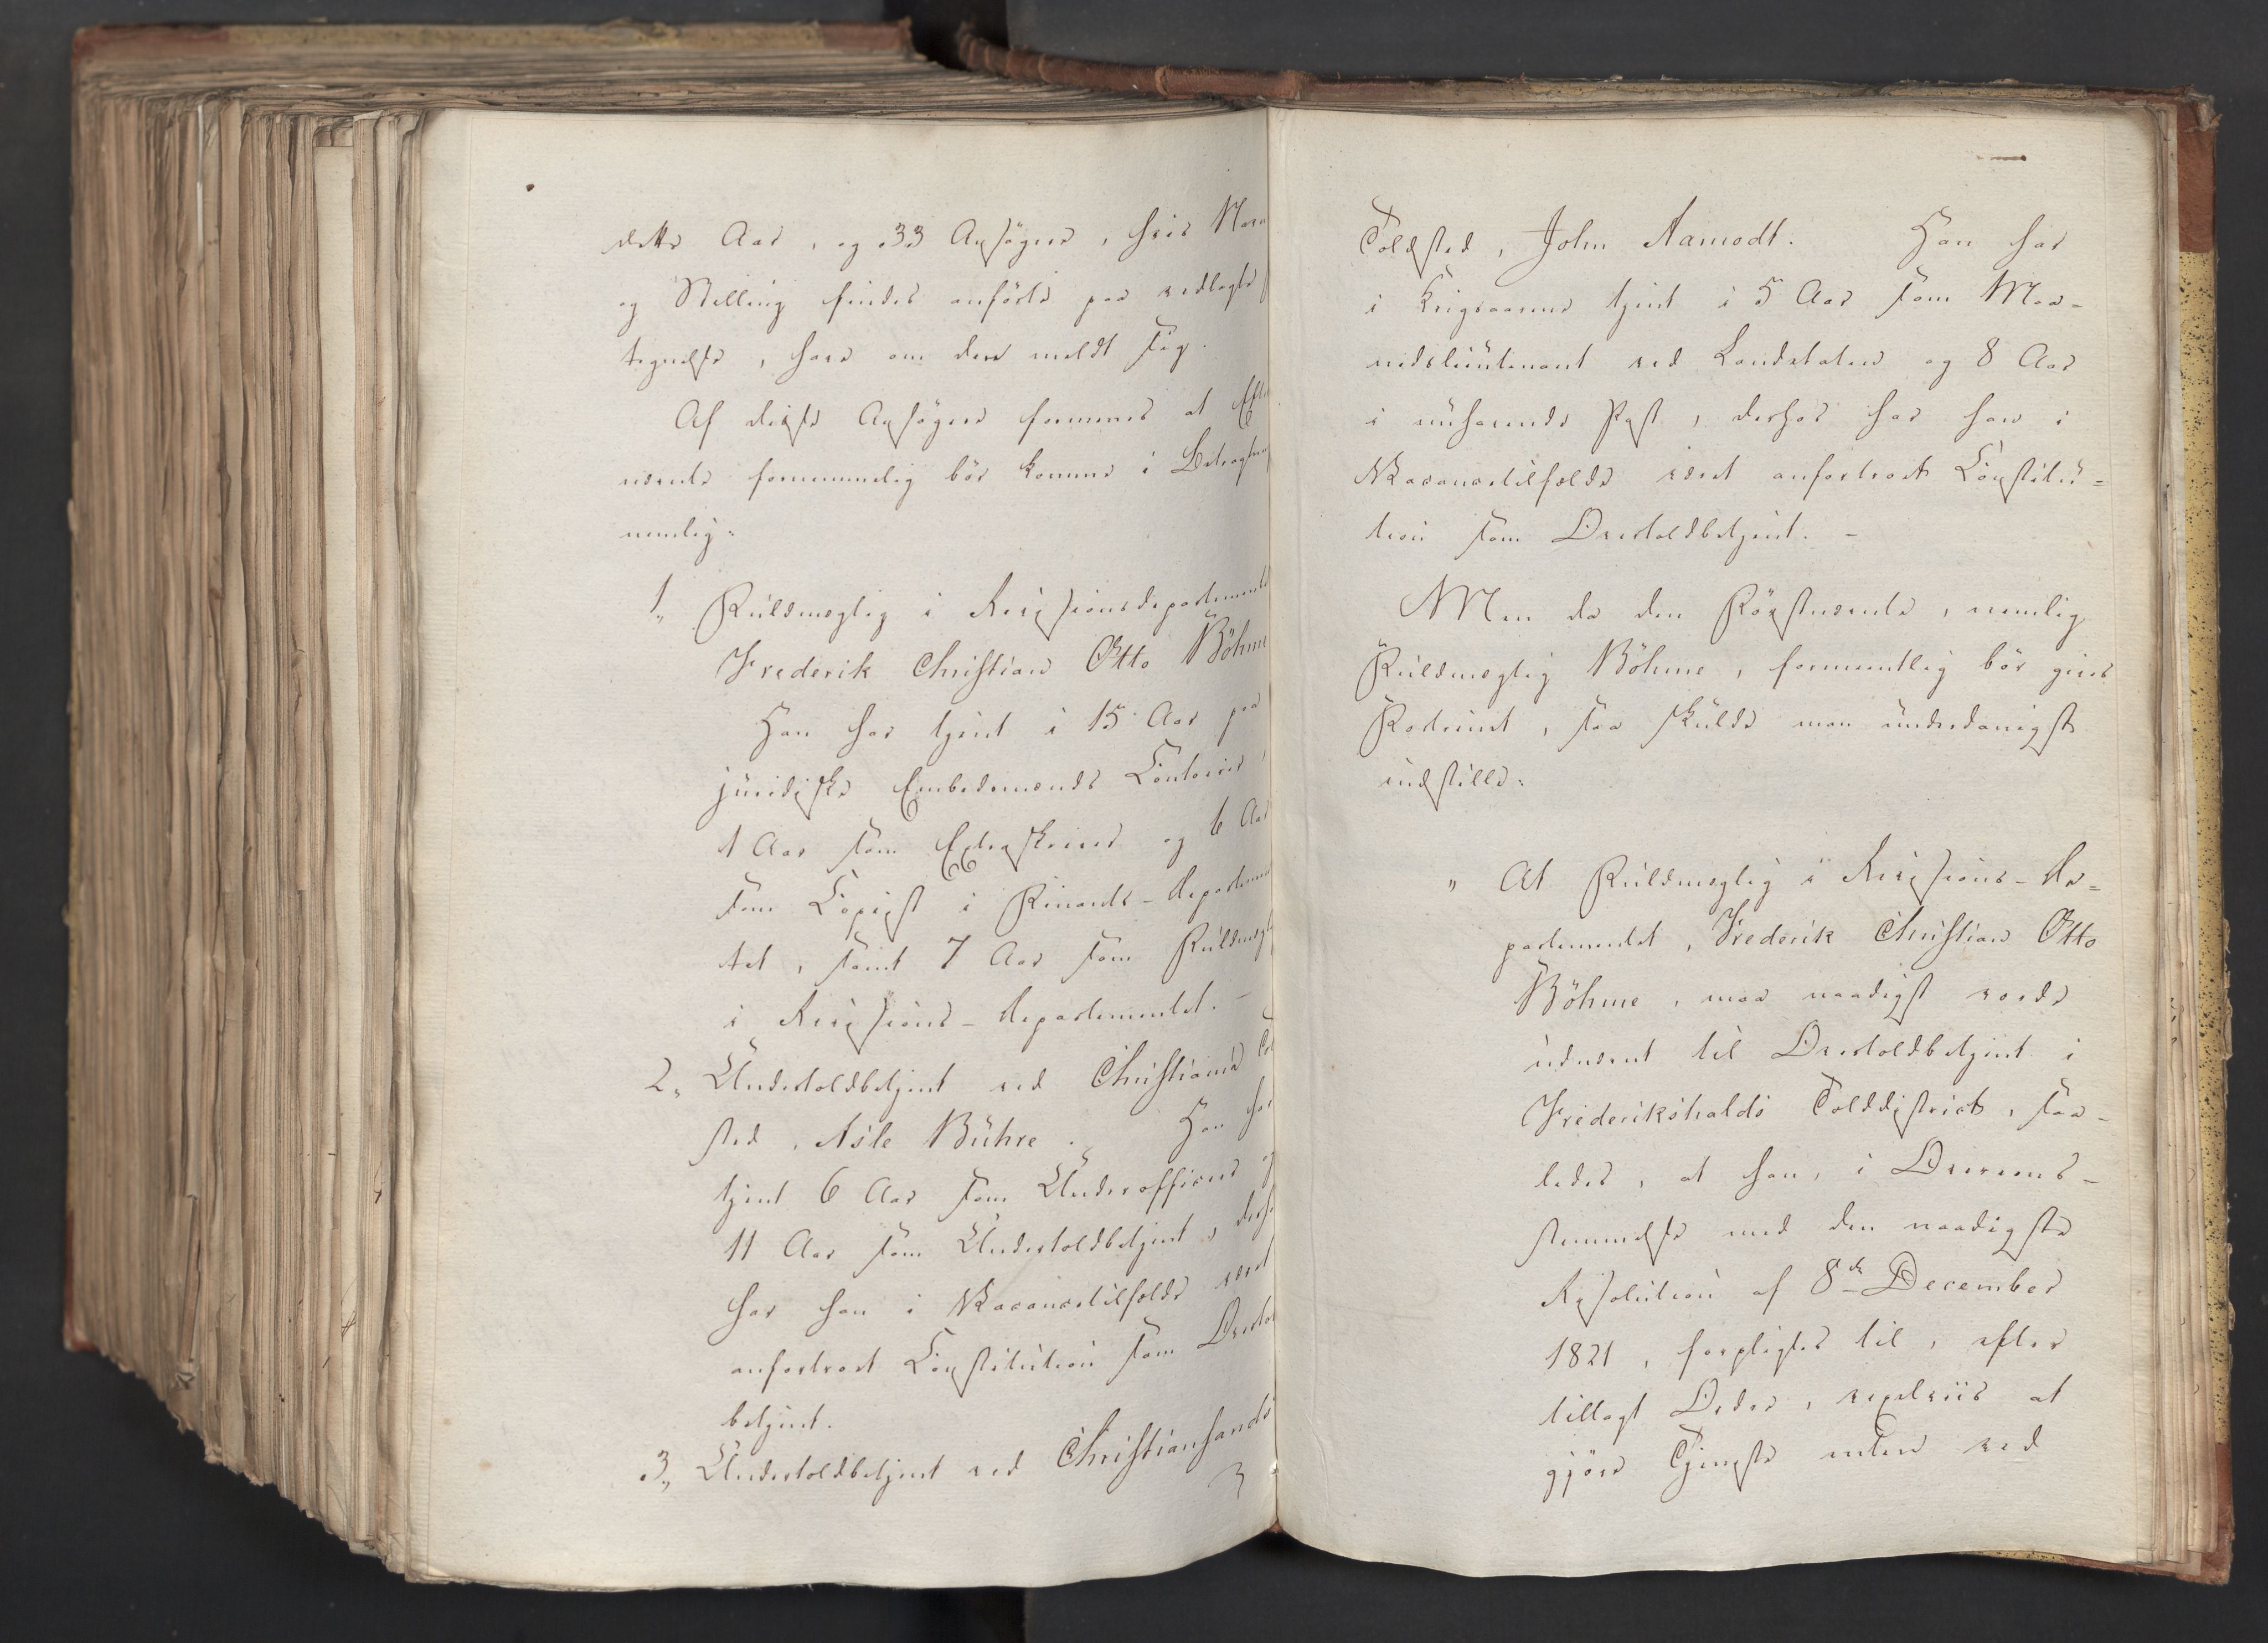 dette Aar, og 33 Ansøgere, hvis Navn
og Stilling findes anførte paa vedlagte
tegnelse, have om den meldt sig.
Af disse Ansøgere formenes at Efter
nævnte fornemmelig bør komme i Betragtning
nemlig:
1, Fuldmægtig i Revisionsdepartementet
Frederik Christian Otto Böhme
Han har tjent i 15 Aar paa
juridiske Embedsmænds Contoirer,
1 Aar som Extraskriver og 6 Aar
som Copist i Finants-Departemen
tet, samt 7 Aar som Fuldmægtig
i Revisions-Departementet. -
2, Undertoldbetjent ved Christiania Told
sted, Asle Bühre. Han har
tjent 6 Aar som Underofficer og
11 Aar som Undertoldbetjent, derhos
har han i Vacancetilfælde været
anfortroet Constitution som Overtold
betjent.
3, Undertoldbetjent ved Christiansands
Toldsted, John Aamodt. Han har
i Krigsaarene tjent i 5 Aar som Maa-
nedslieutenant ved Landetaten og 8 Aar
i nuhavende Post, derhos har han i
Vacancetilfælde været anfortroet Constitu-
tion som Overtoldbetjent. -
Men da den Førstnævnte, nemlig
Fuldmægtig Böhme, formeentlig bør gives
Fortrinet, saa skulde man underdanigst
indstille:
" At Fuldmægtig i Revisions-De-
partementet, Frederik Christian Otto
Böhme, maa naadigst vorde
udnævnt til Overtoldbetjent i
Frederikshalds Tolddistrict, saa-
ledes, at han, i Overeens-
stemmelse med den naadigste
Resolution af 8de December
1821, forpligtes til, efter
tillagt Ordre, vexelviis at
gjøre Tjeneste enten ved